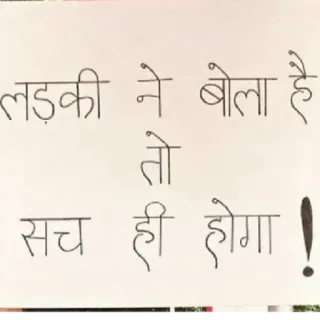 लड़की ने बोला है
तो
सच ही होगा!